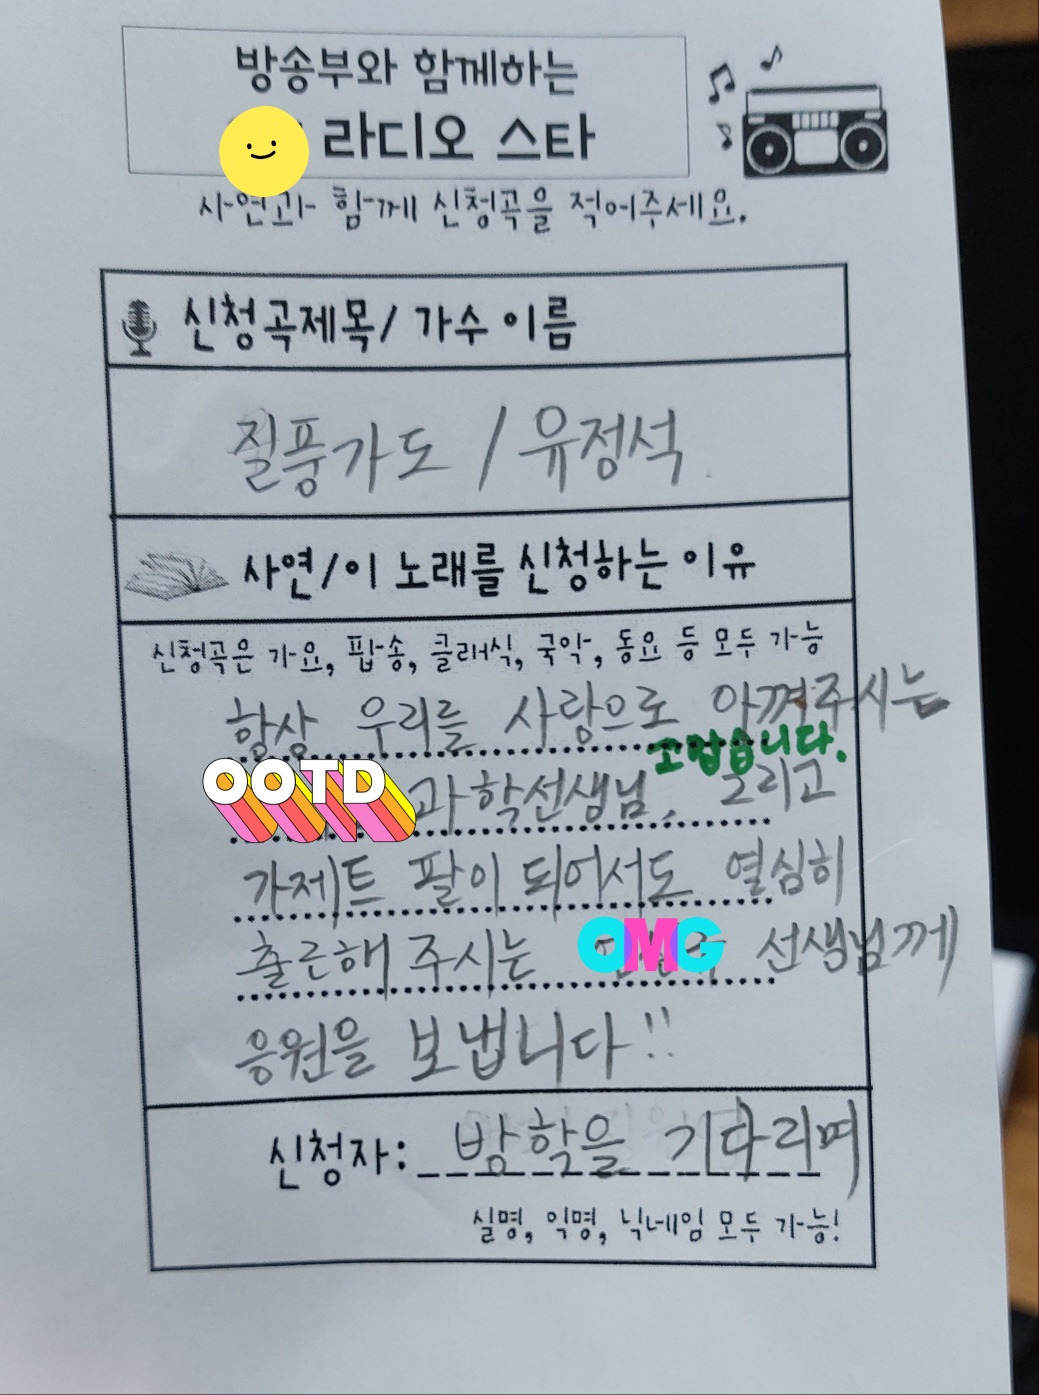 방송부와 함께하는
라디오 스타
사연과 함께 신청곡을 적어주세요.
신청곡제목/ 가수 이름
질풍가도 / 유정석
사연/이 노래를 신청하는 이유
신청곡은 가요, 팝송, 클래식, 국악, 동요 등 모두 가능
항상 우리를 사랑으로 아껴주시는
고맙습니다.
OOTD 과학선생님, 그리고
가제트 팔이 되어서도 열심히
출근해 주시는 OMG 선생님께
응원을 보냅니다!!
신청자: 방학을 기다리며
실명, 익명, 닉네임 모두 가능!